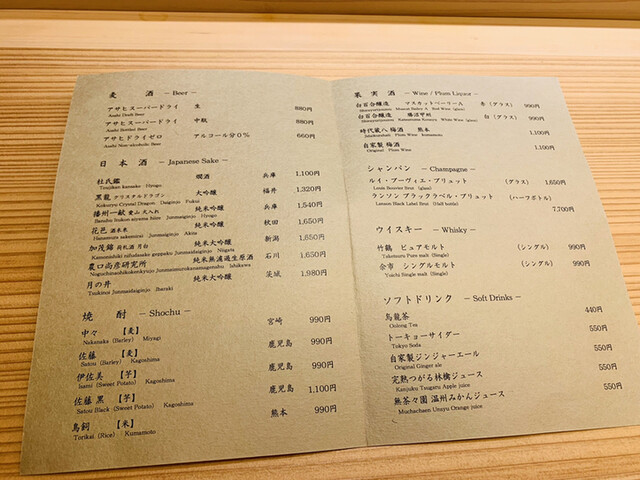 麦 酒 － Beer －
アサヒスーパードライ 生 880円
Asahi Draft Beer
アサヒスーパードライ 中瓶 880円
Asahi Bottled Beer
アサヒドライゼロ アルコール分0% 660円
Asahi Non-alcoholic Beer
日 本 酒 － Japanese Sake －
杜氏鑑 燗酒 兵庫 1,100円
Toujikan kansake Hyogo
黒龍 クリスタルドラゴン 大吟醸 福井 1,320円
Kokuryu Crystal Dragon Daiginjo Fukui
播州一献 愛山 火入れ 純米吟醸 兵庫 1,540円
Banshu Ikkon aiyama hiire Junmaiginjo Hyogo
花邑 純米吟醸 秋田 1,650円
Hanamura Junmaiginjo Akita
加茂錦 荷札酒 月白 純米大吟醸 新潟 1,650円
Kamonishiki nifudasake geppaku Junmaidaiginjo Niigata
農口尚彦研究所 純米無濾過生原酒 石川 1,650円
Noguchinaohikokenkyujo Ishikawa
月の井 純米大吟醸 茨城 1,980円
Tsukinoi Junmaidaiginjo Ibaraki
焼 酎 － Shochu －
中々 【麦】 宮崎 990円
Nakanaka (Barley) Miyagi
佐藤 【麦】 鹿児島 990円
Satou (Barley) Kagoshima
伊佐美 【芋】 鹿児島 990円
Isami (Sweet Potato) Kagoshima
佐藤 黒 【芋】 鹿児島 1,100円
Satou Black (Sweet Potato) Kagoshima
鳥飼 【米】 熊本 990円
Torikai (Rice) Kumamoto
果 実 酒 － Wine / Plum Liquor －
白百合醸造 マスカットベーリーA 赤（グラス） 990円
Shirayurijouzou Muscat Bailey A Red Wine (glass)
白百合醸造 勝沼甲州 白（グラス） 990円
Shirayurijouzou Katsunuma Koshu White Wine (glass)
時代蔵八 梅酒 熊本 1,100円
Plum Wine Kumamoto
自家製 梅酒 1,100円
Original Plum Wine
シャンパン － Champagne －
ルイ・ブーヴィエ・ブリュット （グラス） 1,650円
Brut (glass)
ランソン ブラックラベル・ブリュット （ハーフボトル）
Lanson Black Label Brut (Half bottle) 7,700円
ウイスキー － Whisky －
竹鶴 ピュアモルト （シングル） 990円
Taketsuru Pure malt (Single)
余市 シングルモルト （シングル） 990円
Yoichi Single malt (Single)
ソフトドリンク － Soft Drinks －
烏龍茶 440円
Oolong Tea
トーキョーサイダー 550円
Tokyo Soda
自家製ジンジャーエール 550円
Original Ginger ale
完熟つがる林檎ジュース 550円
Kanjuku Tsugaru Apple juice
無茶々園 温州みかんジュース 550円
Muchachaen Unsyu Orange juice